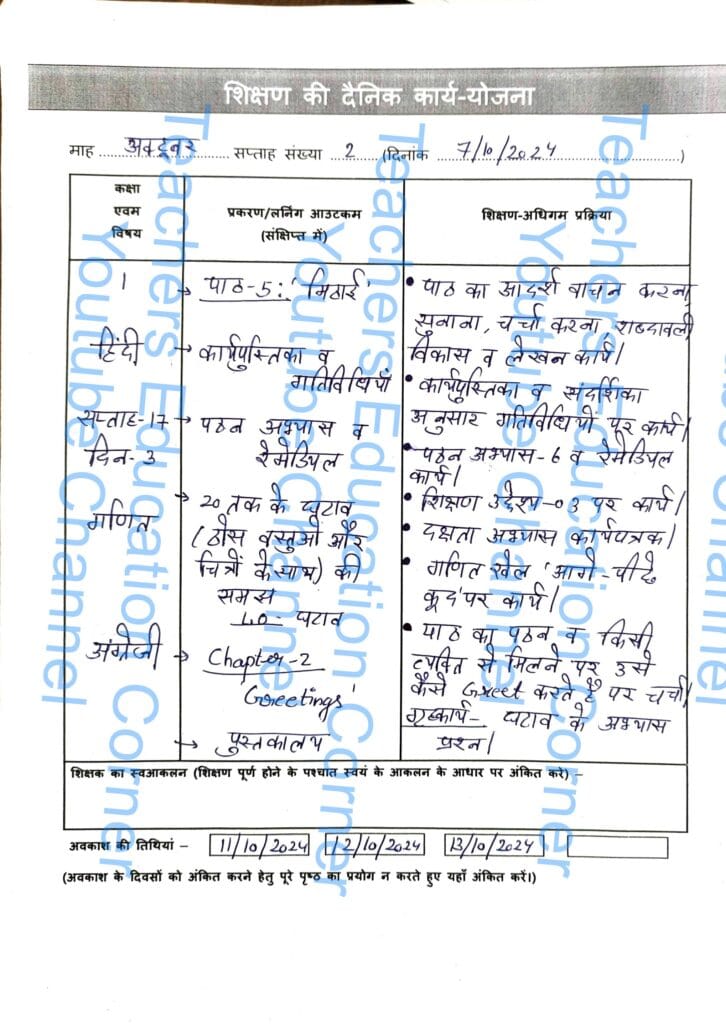 शिक्षण की दैनिक कार्य-योजना
माह अक्टूबर सप्ताह संख्या 2 (दिनांक 7/10/2024)
कक्षा
एवम
विषय
प्रकरण/लर्निंग आउटकम
(संक्षिप्त में)
शिक्षण-अधिगम प्रक्रिया
1
हिंदी
सप्ताह-17
दिन-3
→ पाठ-5: 'मिठाई'
→ कार्यपुस्तिका व
गतिविधियाँ
→ पठन अभ्यास व
रेमेडियल
• पाठ का आदर्श वाचन करना,
सुनाना, चर्चा करना, शब्दावली
विकास व लेखन कार्य।
• कार्यपुस्तिका व संदर्शिका
अनुसार गतिविधियों पर कार्य।
• पठन अभ्यास-6 व रेमेडियल
कार्य।
गणित
→ 20 तक के घटाव
(ठोस वस्तुओं और
चित्रों के साथ) की
समझ
LO- घटाव
• शिक्षण उद्देश्य-03 पर कार्य।
• दक्षता अभ्यास कार्यपत्रक।
• गणित खेल 'आगे-पीछे
कूद' पर कार्य।
अंग्रेजी
→ Chapter-2
'Greetings'
→ पुस्तकालय
• पाठ का पठन व किसी
व्यक्ति से मिलने पर उसे
कैसे Greet करते हैं पर चर्चा।
गृहकार्य- घटाव के अभ्यास
प्रश्न।
शिक्षक का स्वआकलन (शिक्षण पूर्ण होने के पश्चात स्वयं के आकलन के आधार पर अंकित करे) –
अवकाश की तिथियां – 11/10/2024 12/10/2024 13/10/2024
(अवकाश के दिवसों को अंकित करने हेतु पूरे पृष्ठ का प्रयोग न करते हुए यहाँ अंकित करें।)
Teachers Education Corner
Youtube Channel
Teachers Education Corner
Youtube Channel
Teachers Education Corner
Youtube Channel